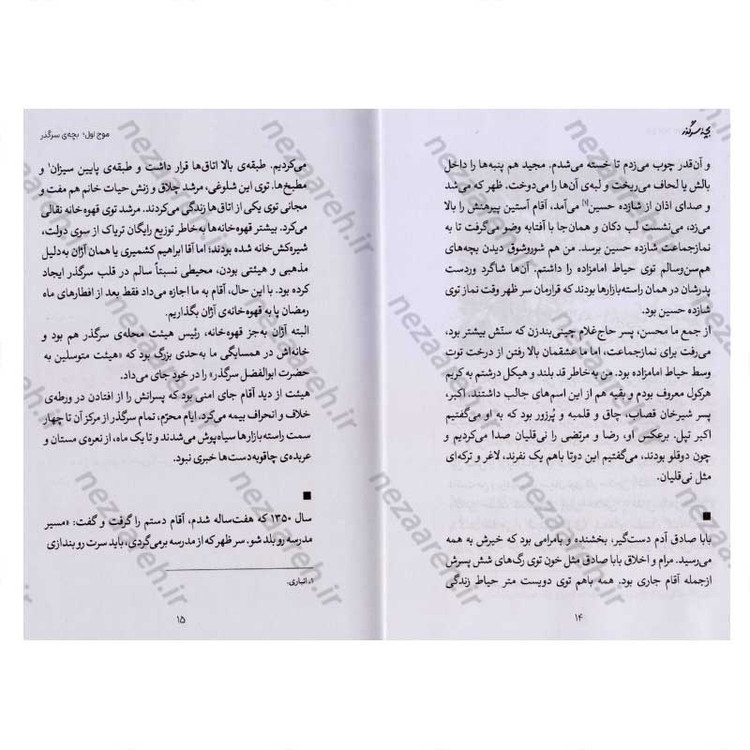 بچه سرگذر
و آن‌قدر چوب می‌زدم تا خسته می‌شدم. مجید هم پنبه‌ها را داخل
بالش یا لحاف می‌ریخت و لبه‌ی آن‌ها را می‌دوخت. ظهر که می‌شد
و صدای اذان از شازده حسین[۱] می‌آمد، آقام آستین پیرهنش را بالا
می‌زد، می‌نشست لب دکان و همان‌جا با آفتابه وضو می‌گرفت تا به
نمازجماعت شازده حسین برسد. من هم شوروشوق دیدن بچه‌های
هم‌سن‌وسالم توی حیاط امامزاده را داشتم. آن‌ها شاگرد وردست
پدرشان در همان راسته‌بازارها بودند که قرارمان سر ظهر وقت نماز توی
شازده حسین بود.
از جمع ما محسن، پسر حاج‌غلام چینی‌بندزن که سنّش بیشتر بود،
می‌رفت برای نمازجماعت، اما ما عشقمان بالا رفتن از درخت توت
وسط حیاط امامزاده بود. من به‌خاطر قد بلند و هیکل درشتم به کریم
هرکول معروف بودم و بقیه هم از این اسم‌های جالب داشتند. اکبر،
پسر شیرخان قصاب، چاق و قلمبه و پُرزور بود که به او می‌گفتیم
اکبر تپل. برعکس او، رضا و مرتضی را نی‌قلیان صدا می‌کردیم و
چون دوقلو بودند، می‌گفتیم این دوتا باهم یک نفرند، لاغر و ترکه‌ای
مثل نی‌قلیان.
■
بابا صادق آدم دست‌گیر، بخشنده و بامرامی بود که خیرش به همه
می‌رسید. مرام و اخلاق بابا صادق مثل خون توی رگ‌های شش پسرش
ازجمله آقام جاری بود. همه باهم توی دویست متر حیاط زندگی
۱۴
موج اول؛ بچه‌ی سرگذر
می‌کردیم. طبقه‌ی بالا اتاق‌ها قرار داشت و طبقه‌ی پایین سیزان۱ و
مطبخ‌ها. توی این شلوغی، مرشد چلاق و زنش حیات خانم هم مفت و
مجانی توی یکی از اتاق‌ها زندگی می‌کردند. مرشد توی قهوه‌خانه نقالی
می‌کرد. بیشتر قهوه‌خانه‌ها به‌خاطر توزیع رایگان تریاک از سوی دولت،
شیره‌کش‌خانه شده بودند؛ اما آقا ابراهیم کشمیری یا همان آژان به‌دلیل
مذهبی و هیئتی بودن، محیطی نسبتاً سالم در قلب سرگذر ایجاد
کرده بود. با این حال، آقام به ما اجازه می‌داد فقط بعد از افطارهای ماه
رمضان پا به قهوه‌خانه‌ی آژان بگذاریم.
البته آژان به‌جز قهوه‌خانه، رئیس هیئت محله‌ی سرگذر هم بود و
خانه‌اش در همسایگی ما به‌حدی بزرگ بود که «هیئت متوسلین به
حضرت ابوالفضل سرگذر» را در خود جای می‌داد.
هیئت از دید آقام جای امنی بود که پسرانش را از افتادن در ورطه‌ی
خلاف و انحراف بیمه می‌کرد. ایام محرّم، تمام سرگذر از مرکز آن تا چهار
سمت راسته‌بازارها سیاه‌پوش می‌شدند و تا یک ماه، از نعره‌ی مستان و
عربده‌ی چاقوبه‌دست‌ها خبری نبود.
■
سال ۱۳۵۰ که هفت‌ساله شدم، آقام دستم را گرفت و گفت: «مسیر
مدرسه رو بلد شو. سر ظهر که از مدرسه برمی‌گردی، باید سرت رو بندازی
۱. انباری.
۱۵
nezaareh.ir